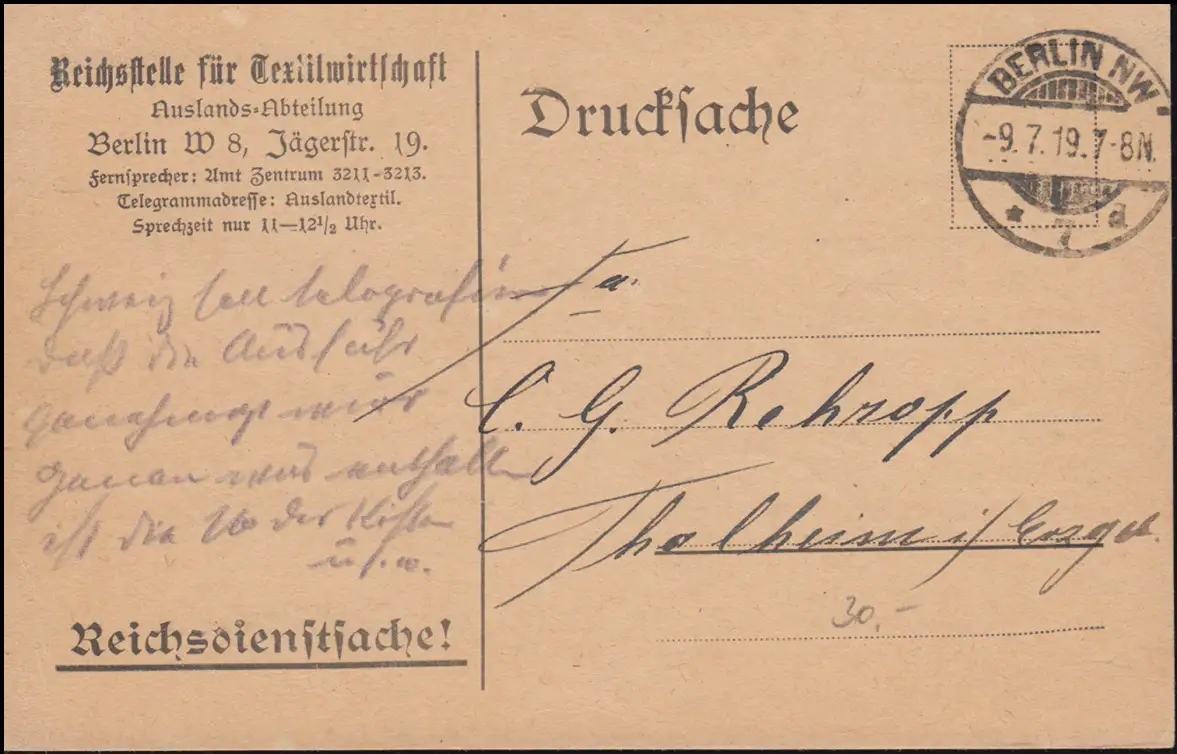 Reichsstelle für Textilwirtschaft
Auslands-Abteilung
Berlin W 8, Jägerstr. 19.
Fernsprecher: Amt Zentrum 3211-3213.
Telegrammadresse: Auslandtextil.
Sprechzeit nur 11—12 1/2 Uhr.
Schweiz soll telografieren
daß die Ausfuhr
genehmigt wird
genau was enthalten
ist die No der Kisten
u.s.w.
Reichsdienstsache!
Drucksache
BERLIN NW
-9.7.19.7-8N.
* 7 d
Fa.
C. G. Rehropp
Thalheim i/ Erzgeb.
30.-